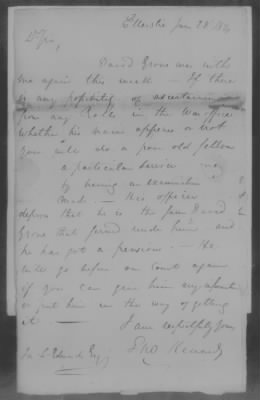 Ellerslie Jan 28th
D Sir,
David Grove was with
me again this week - If there
is any possibility of ascertaining
from any Rolls in the War office
whether his name appears or not
you will do a poor old fellow
a particular service may
by having an examination
made. - His officer
deposes that he is the same David
Grove that served under him and
he has got a pension. - He
will go before our Court again
if you can give him any
or put him in the way of getting
it -
I am respectfully yours
Tho Kennedy
J L Edwards Esq